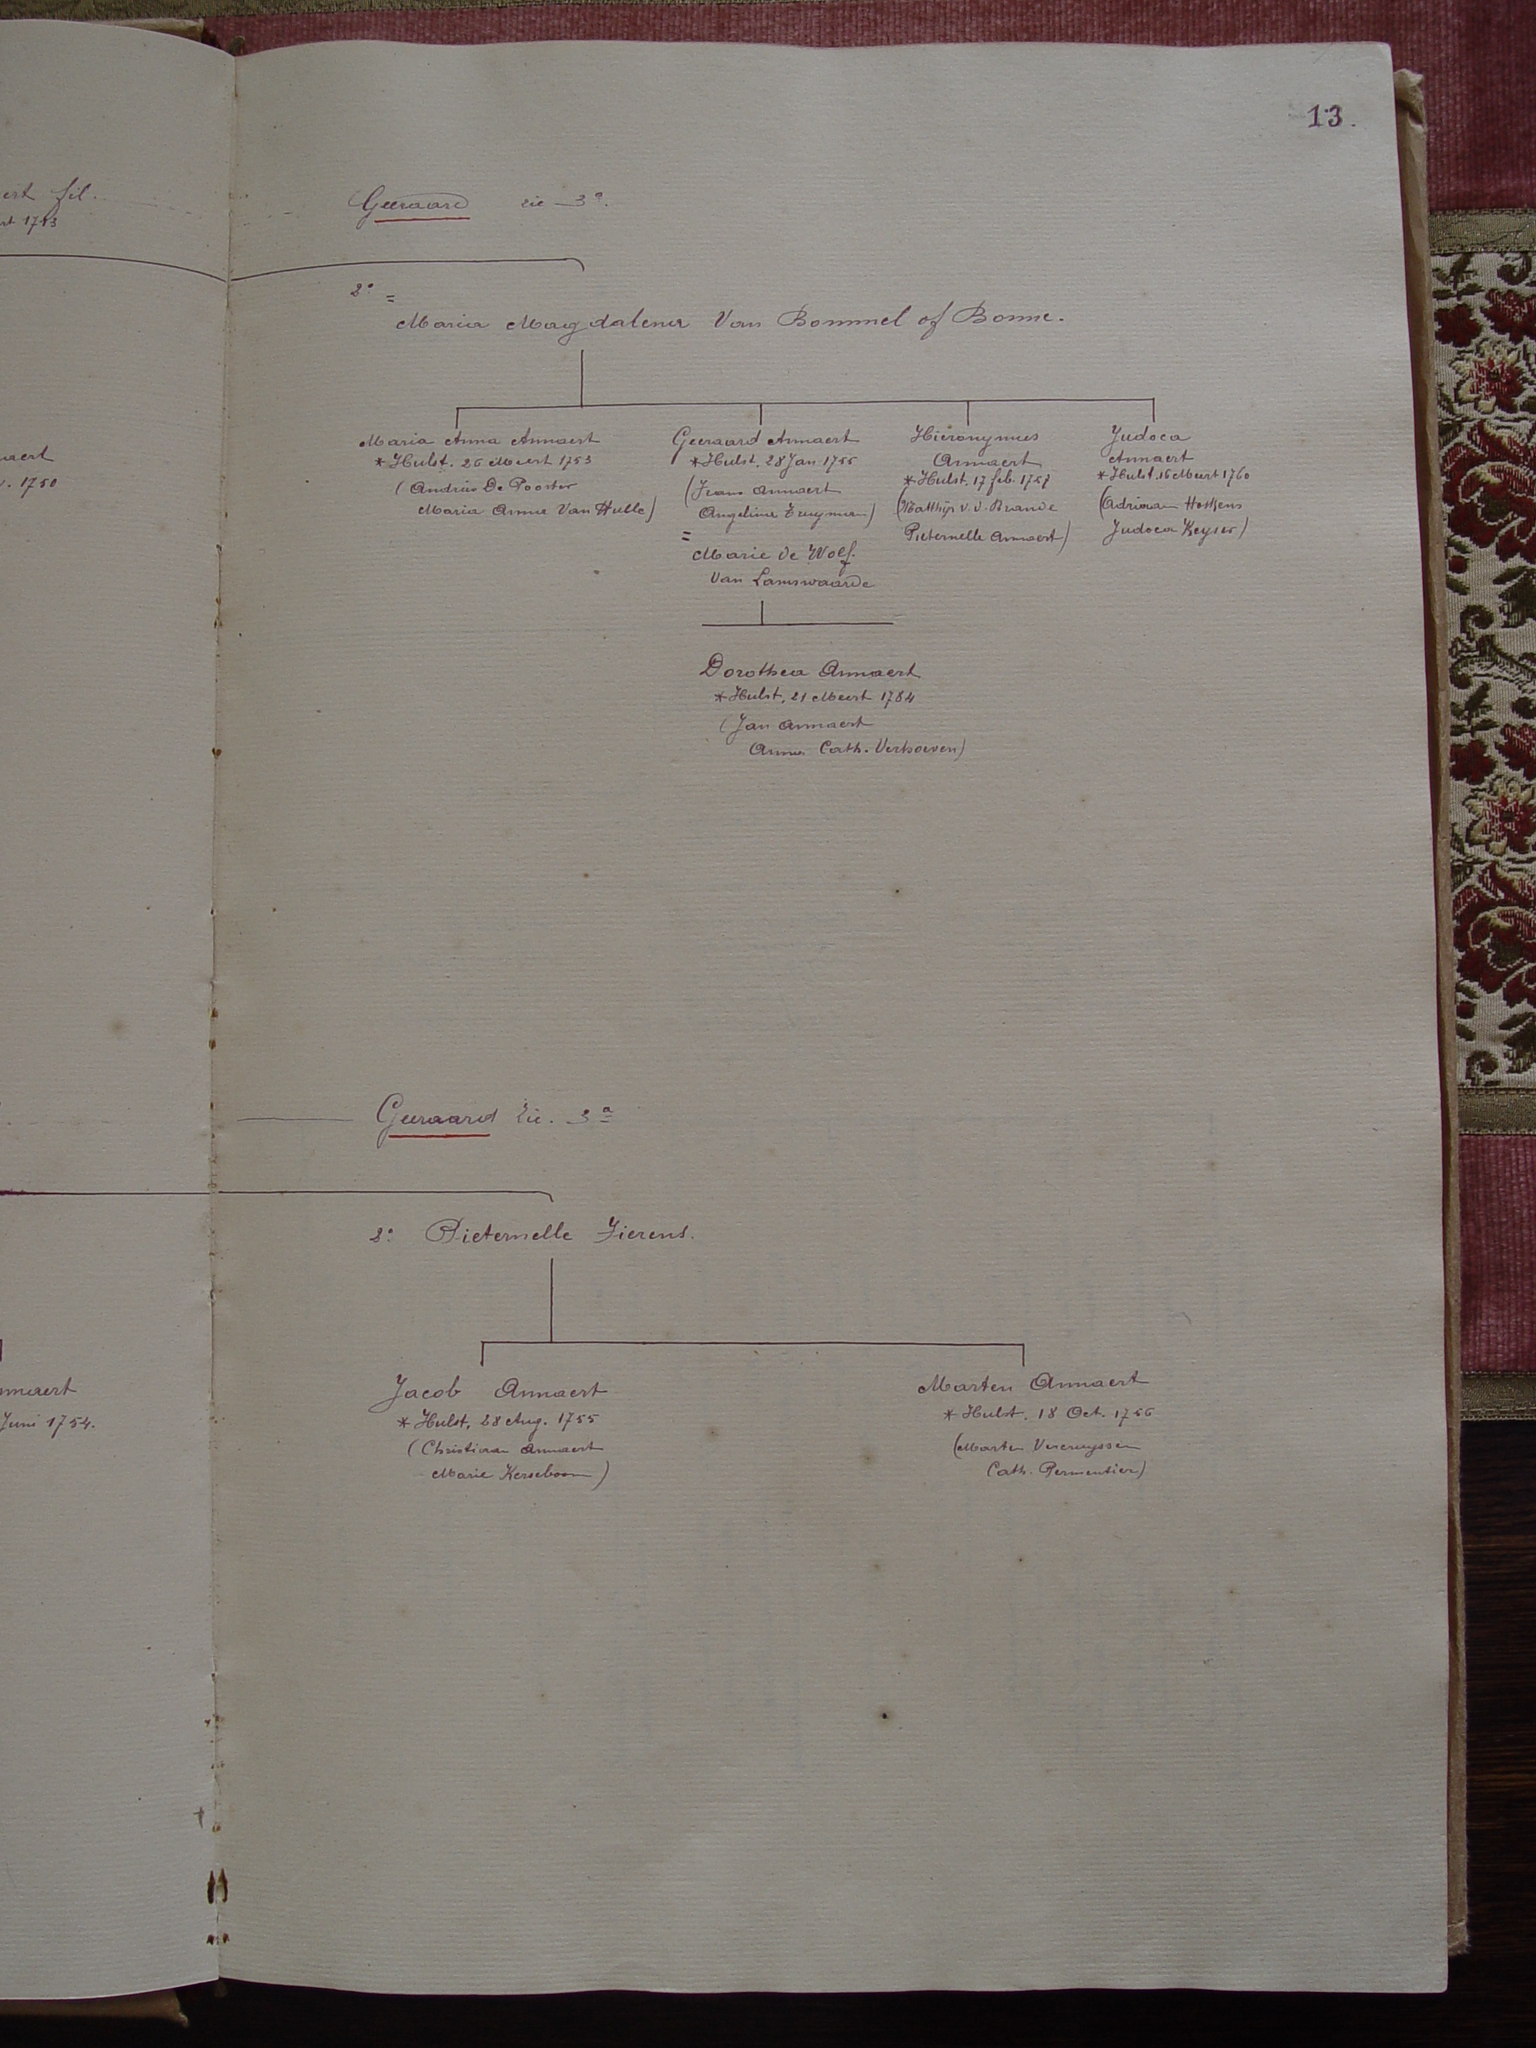 13.
ert fil.
rt 1743
Geeraard zie 3ª.
2° =
Maria Magdalena Van Bommel of Bonne.
naert
. 1750
Maria Anna Annaert
* Hulst. 26 Meert 1753
(Andries De Pooster
Maria Anna Van Hulle)
Geeraard Annaert
* Hulst. 28 Jan. 1755
(Frans Annaert
Angelina)
=
Marie de Wolf.
Van Lamswaarde
Hiëronymus
Annaert
* Hulst. 17 feb. 1757
(Matthijs v. d. Brande
Pieternelle Annaert)
Judoca
Annaert
* Hulst. 16 Meert 1760
(Adriaan
Judoca Keyser)
Dorothea Annaert
* Hulst, 21 Meert 1784
(Jan Annaert
Anna Cath. Verhoeven)
Geeraard Zie. 3ª
2° Pieternelle Fierens.
nnaert
Juni 1754.
Jacob Annaert
* Hulst, 28 Aug. 1755
(Christiaan Annaert
Marie Kerseboom)
Marten Annaert
* Hulst. 18 Oct. 1756
(Marten Vercruyssen
Cath. Permentier)